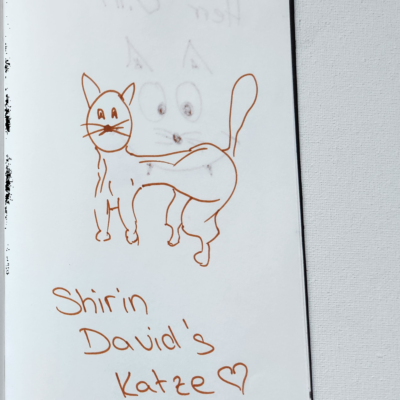 Shirin
David's
Katze ♡